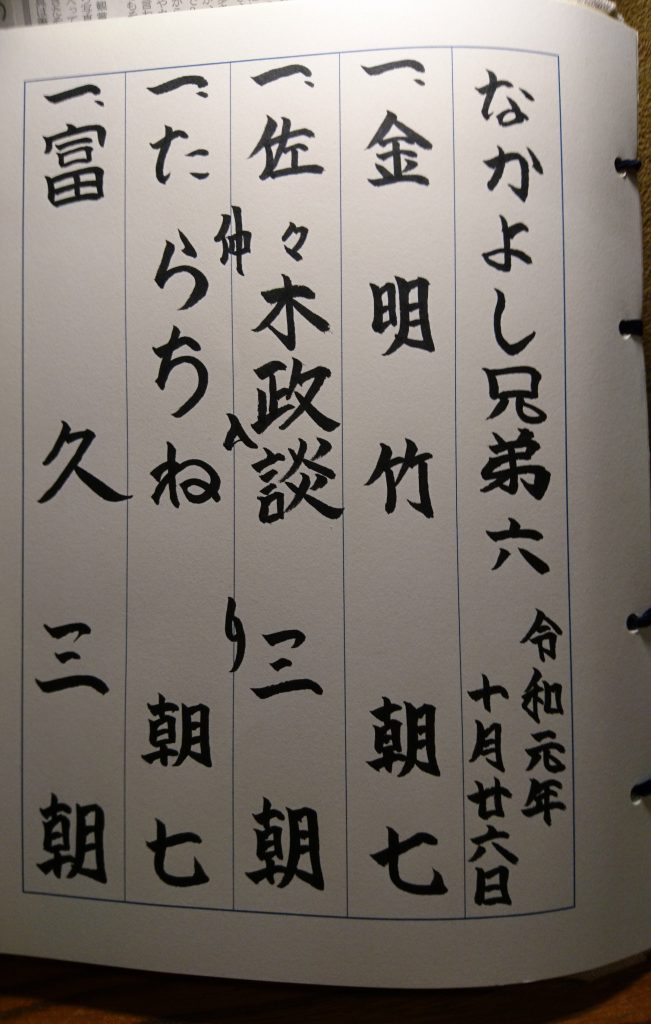 なかよし兄弟六
令和元年
十月廿六日
一、金明竹 朝七
一、佐々木政談 三朝
仲入り
一、たらちね 朝七
一、富久 三朝